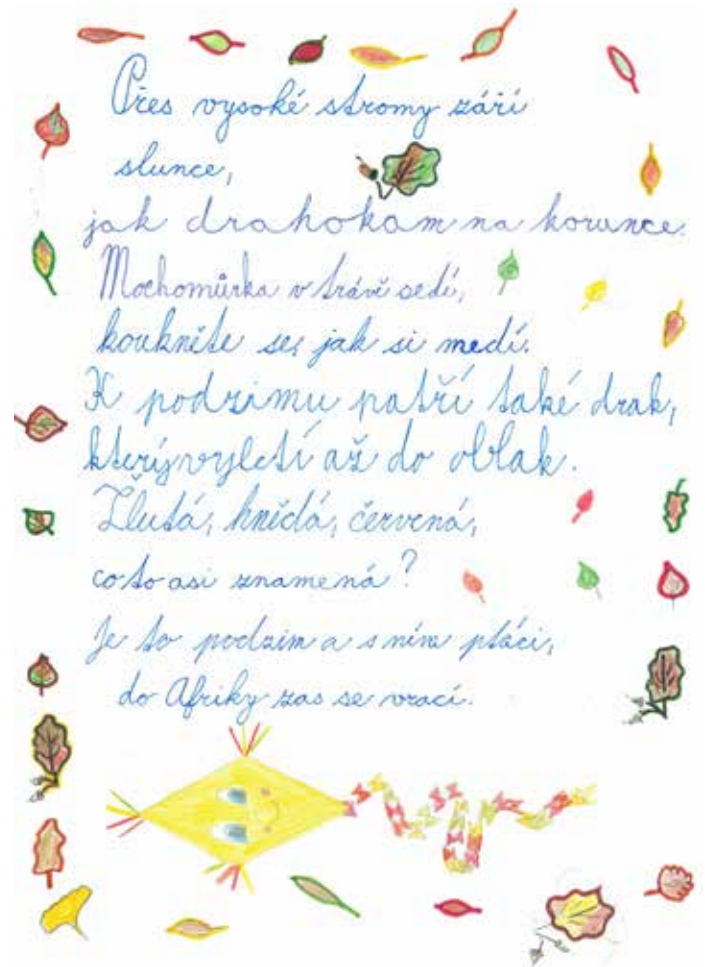 Přes vysoké stromy září
slunce,
jak drahokam na korunce.
Mochomůrka v trávě sedí,
koukněte se, jak si medí.
K podzimu patří také drak,
který vyletí až do oblak.
Žlutá, hnědá, červená,
co to asi znamená?
Je to podzim a s ním ptáci,
do Afriky zas se vrací.